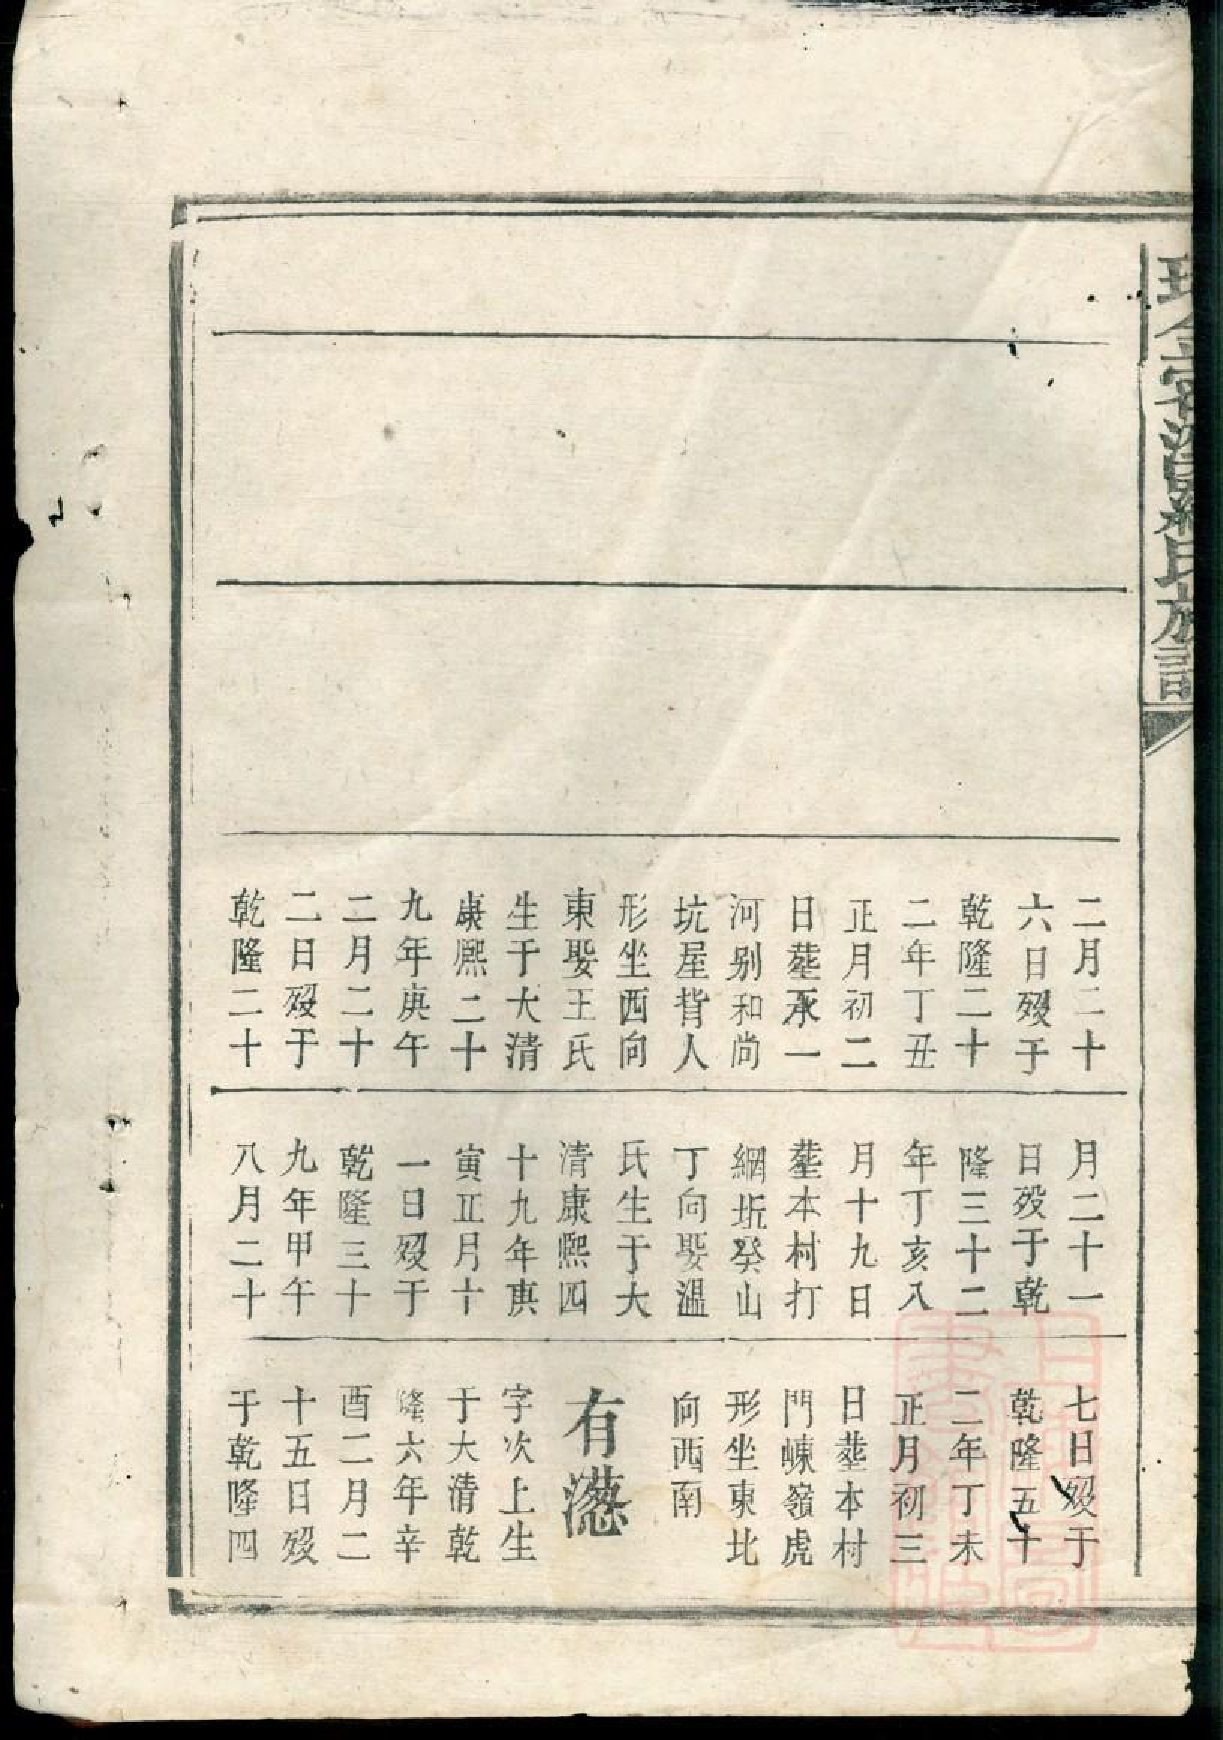 氏族譜
二月二十
六日歿于
乾隆二十
二年丁丑
正月初二
日塟承一
河別和尚
坑屋背人
形坐西向
東娶王氏
生于大清
康熙二十
九年庚午
二月二十
二日歿于
乾隆二十
月二十一
日歿于乾
隆三十二
年丁亥八
月十九日
塟本村打
網坑癸山
丁向娶溫
氏生于大
清康熙四
十九年庚
寅正月十
一日歿于
乾隆三十
九年甲午
八月二十
七日歿于
乾隆五十
二年丁未
正月初三
日塟本村
門崠嶺虎
形坐東北
向西南
有
字次上生
于大清乾
隆六年辛
酉二月二
十五日歿
于乾隆四